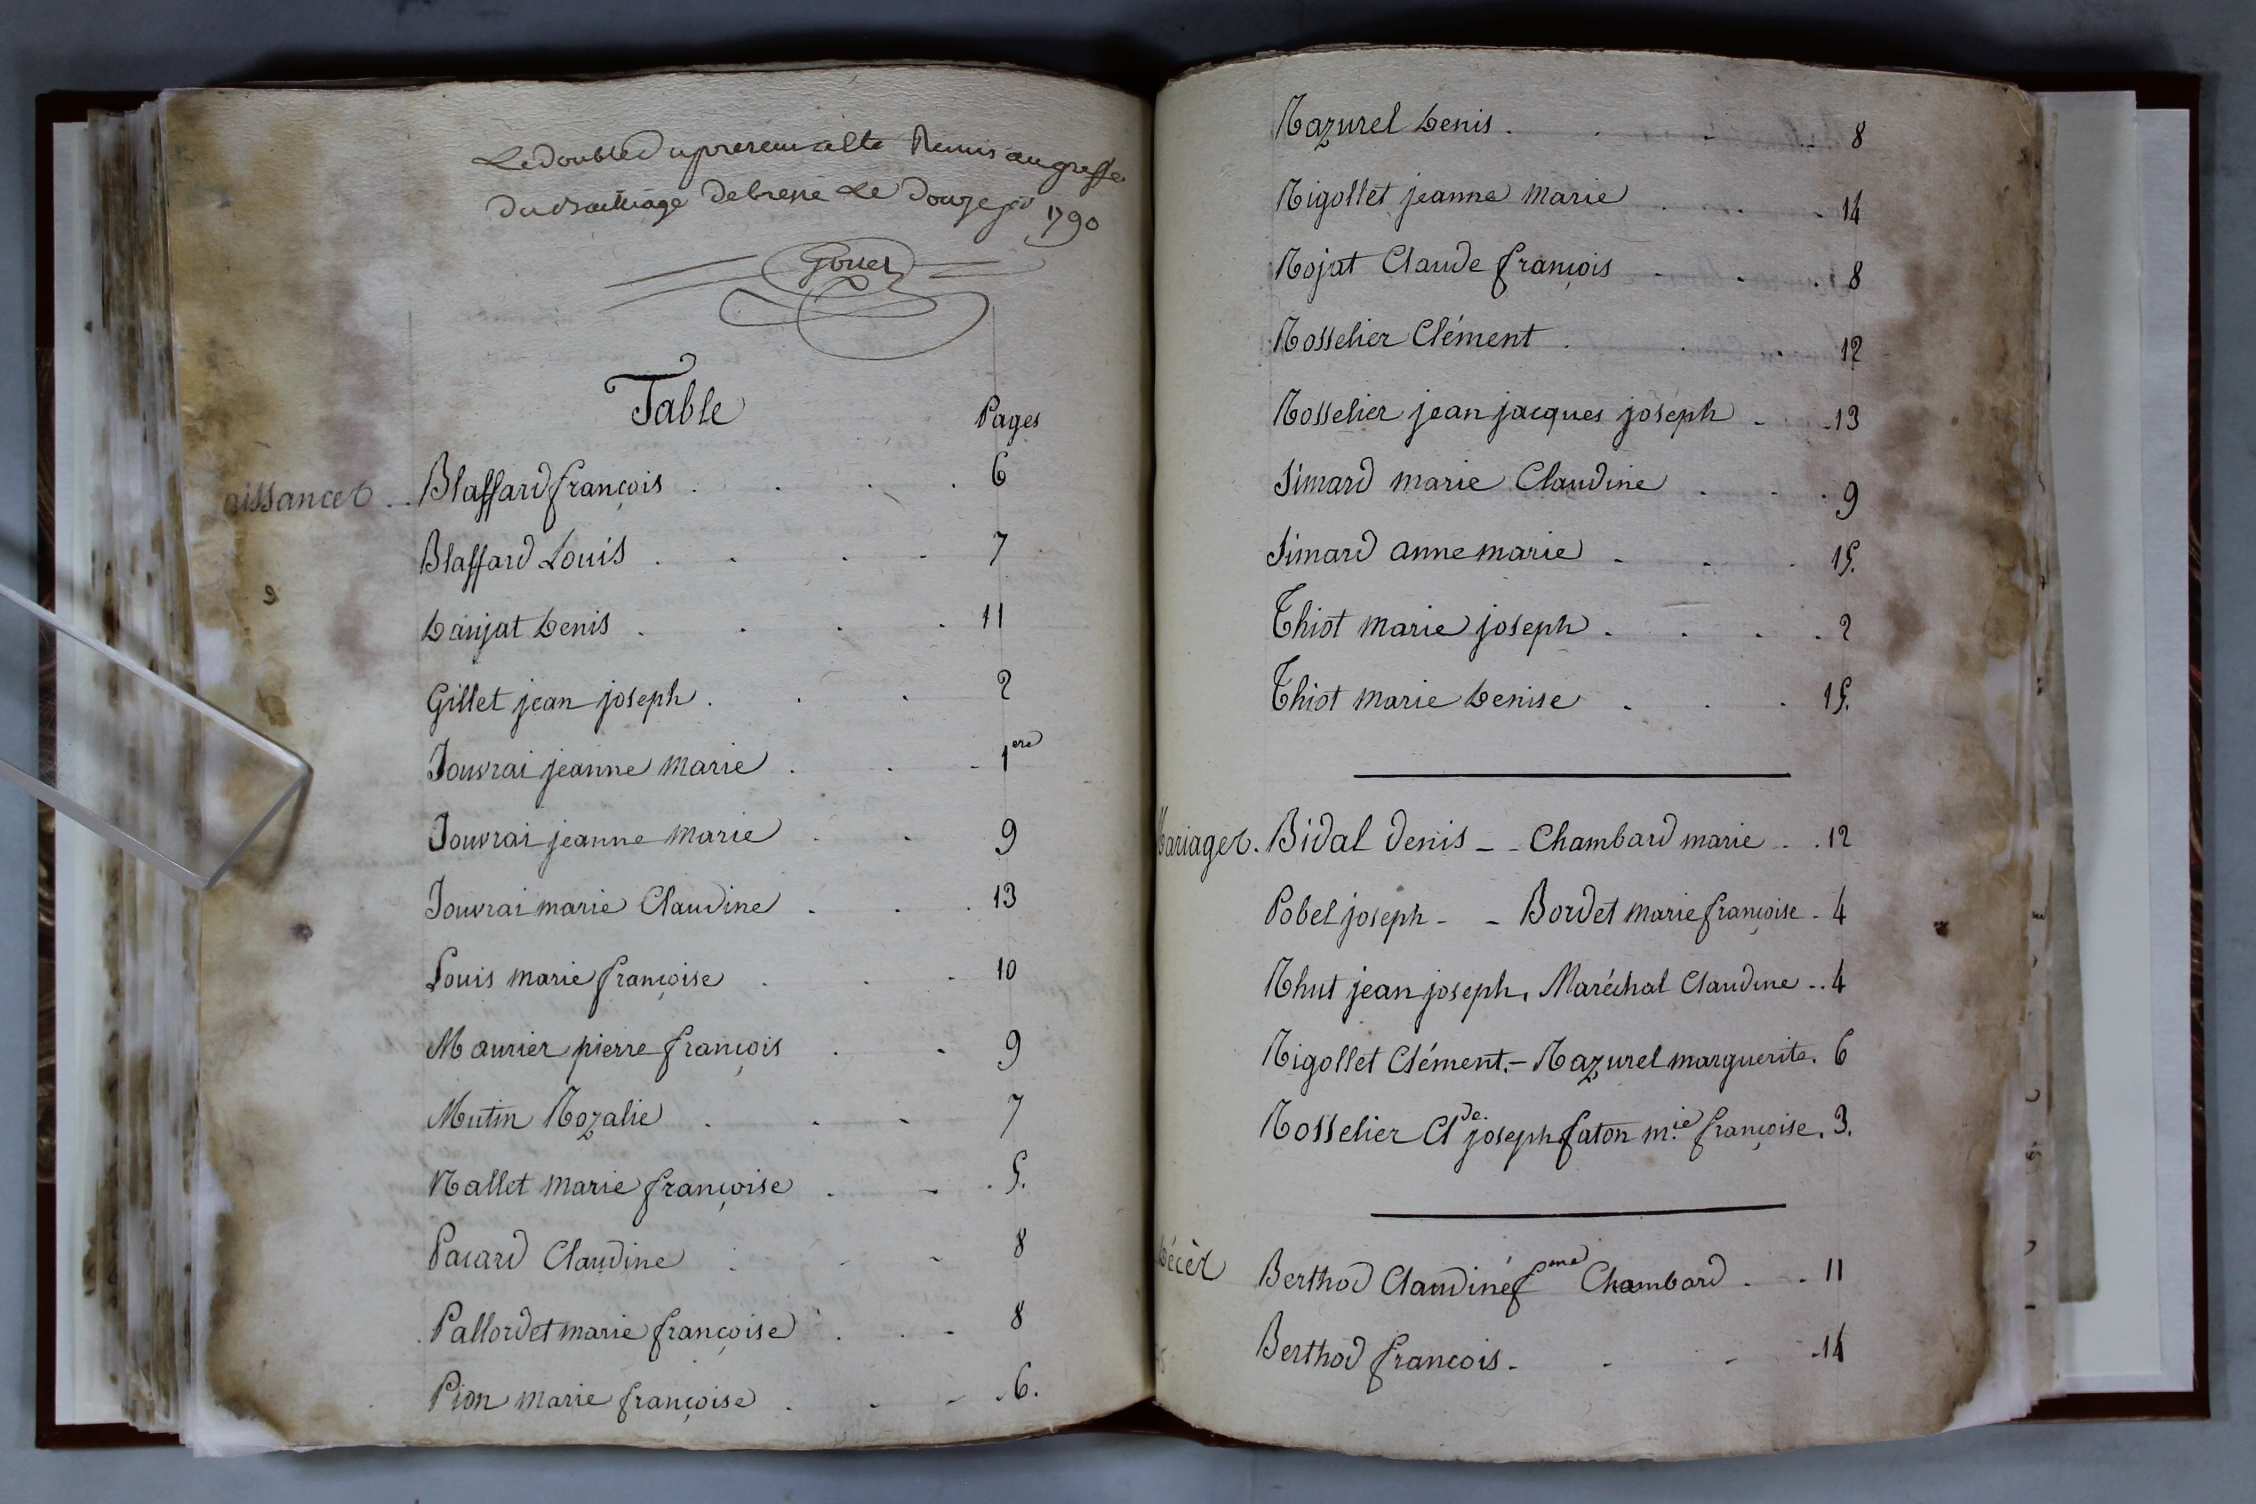 Le double du present a été Remis au greffe
du Bailliage de bresse Le Douze 1790
Gouet
Table
Pages
aissances . . Blaffard françois . . . . 6
Blaffard Louis . . . . 7
Danjat Denis . . . . 11
Gillet jean joseph . . . 2
Jouvrai jeanne marie . . . 1ere
Jouvrai jeanne marie . . 9
Jouvrai marie Claudine . . . 13
Louis marie françoise . . . 10
Maurier pierre françois . . 9
Mutin Rozalie . . . 7
Nallet marie françoise . . . 5.
Pacard Claudine . . . 8
Pallordet marie françoise . . . 8
Pion marie françoise . . . . 6.
Razurel Denis . . . . 8
Rigollet jeanne marie . . . 14
Rojat Claude françois . . . 8
Rosselier Clément . . . 12
Rosselier jean jacques joseph . . 13
Simard marie Claudine . . . 9
Simard anne marie . . . 15.
Thiot marie joseph . . . . 2
Thiot marie Denise . . . 15.
Mariages. Bidal Denis - - Chambard marie . . 12
Pobel joseph - - Bordet marie françoise . 4
Rhut jean joseph, Maréchal Claudine . . 4
Rigollet Clément. - Razurel marguerite. 6
Rosselier Clde. joseph faton mie françoise. 3.
Décès Berthod Claudine feme Chambard . . 11
Berthod francois . . . . 14